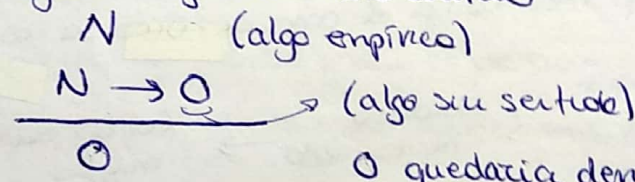 N (algo empírico)
N → O (algo sin sentido)
O O quedaría dem